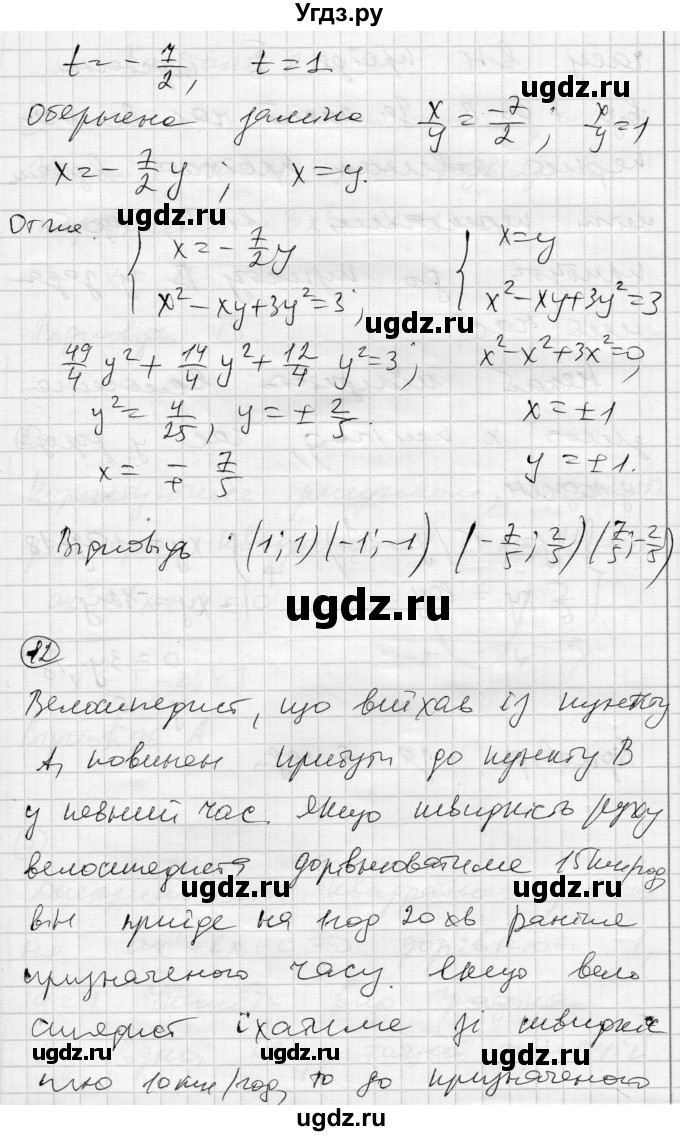 Угдз.ру
t = - 7/2, t = 1
Обернена заміна x/y = -7/2; x/y = 1
x = - 7/2 y; x = y.
Отже.
{ x = - 7/2 y { x = y
x² - xy + 3y² = 3; x² - xy + 3y² = 3
49/4 y² + 14/4 y² + 12/4 y² = 3; x² - x² + 3x² = 0,
y² = 4/25, y = ± 2/5. x = ±1
x = ∓ 7/5 y = ±1.
Відповідь: (1; 1) (-1; -1) (-7/5; 2/5) (7/5; -2/5)
12
Велосипедист, що виїхав із пункту
А, повинен прибути до пункту В
у певний час. Якщо швидкість руху
велосипедиста дорівнюватиме 15 км/год,
він приїде на 1 год 20 хв раніше
призначеного часу. Якщо вело
сипедист їхатиме зі швидкіс
тю 10 км/год, то до призначеного
ugdz.ru
ugdz.ru
ugdz.ru
ugdz.ru
ugdz.ru
ugdz.ru
ugdz.ru
ugdz.ru
ugdz.ru
ugdz.ru